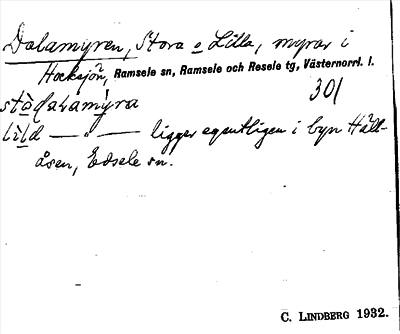 Dalamyren, Stora o Lilla, myrar i
Hocksjön, Ramsele sn, Ramsele och Resele tg, Västernorrl. l.
301
stòdalamy̍ra
lìld — " — ligger egentligen i byn Häll-
åsen, Edsele sn.
C. LINDBERG 1932.